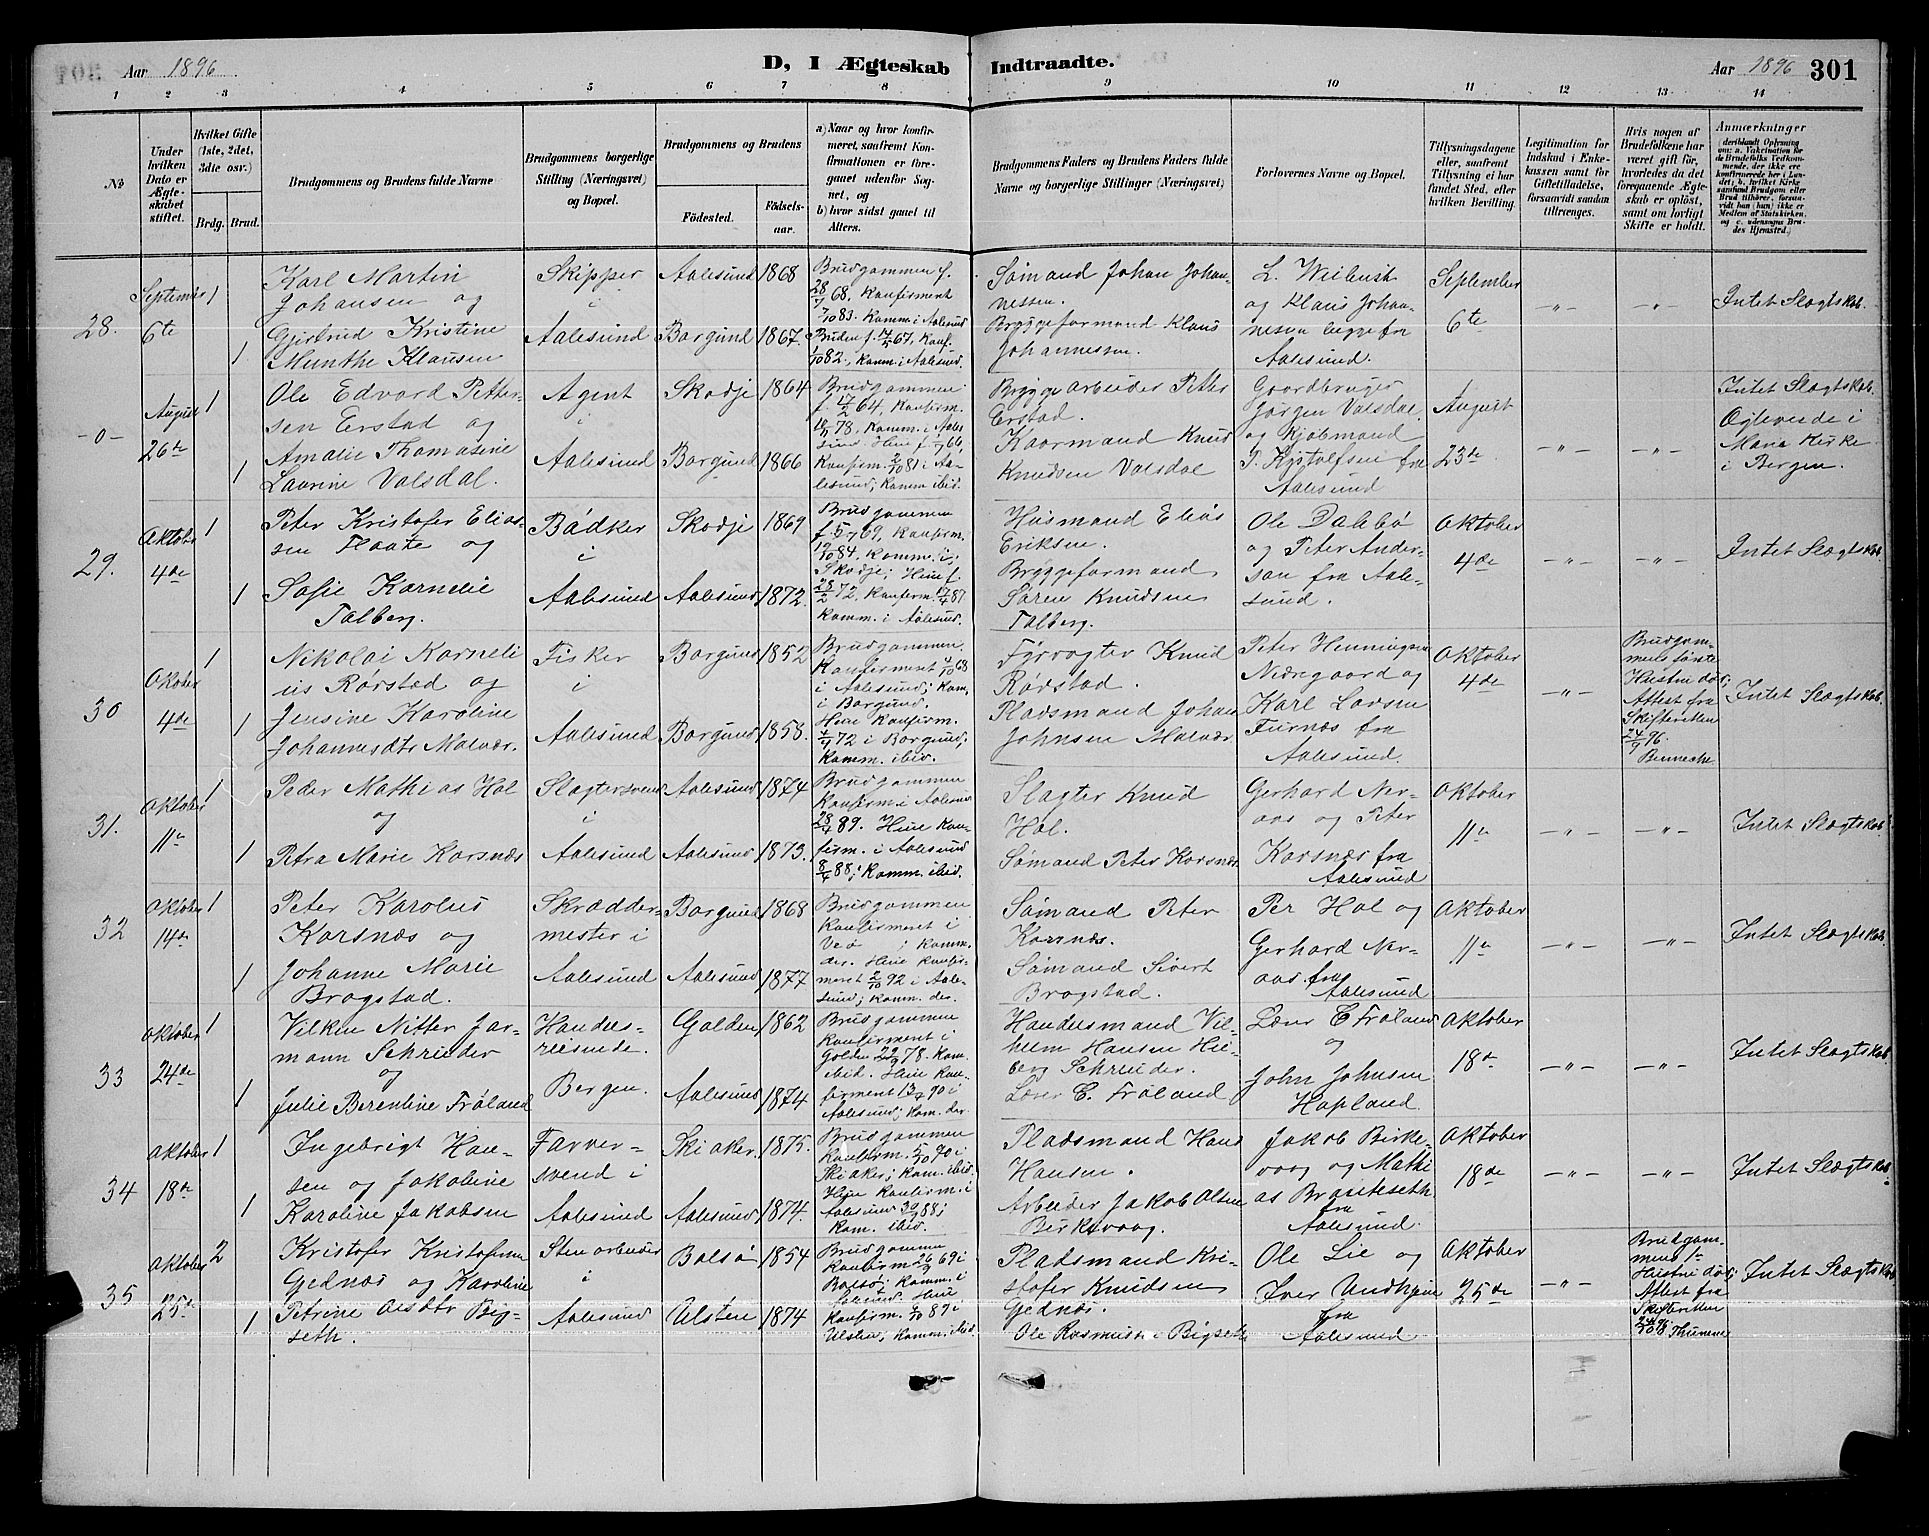 Aar 1896
D, I Ægteskab Indtraadte.
Aar 1896 301
1 2 3 4 5 6 7 8 9 10 11 12 13 14
No
Under hvilken Dato er Ægteskabet stiftet.
Hvilket Gifte (1ste, 2det, 3die osv.)
Brdg. Brud.
Brudgommens og Brudens fulde Navne
Brudgommens borgerlige Stilling (Næringsvei) og Bopæl.
Brudgommens og Brudens
Fødested. Fødselsaar.
a) Naar og hvor konfirmeret, saafremt Konfirmationen er foregaaet udenfor Sognet, og
b) hvor sidst gaaet til Alters.
Brudgommens Faders og Brudens Faders fulde Navne og borgerlige Stillinger (Næringsvei)
Forlovernes Navne og Bopæl.
Tillysningsdagene eller, saafremt Tillysning ei har fundet Sted, efter hvilken Bevilling.
Legitimation for Indskud i Enkekassen samt for Giftetilladelse, forsaavidt saadan tiltrænges.
Hvis nogen af Brudefolkene har været gift før, hvorledes da det foregaaende Ægteskab er opløst, samt om lovligt Skifte er holdt.
Anmærkninger
28. September 6te
1
1
Karl Martin
Johansen og
Gjertrud Kristine
Munthe Klausen
Skipper
i
Aalesund
Aalesund 1868
Borgund 1867.
Brudgommen f.
28/7 68, Konfirment
7/10 83. Komm. i Aalesund
Bruden f. 14/5 67, Konf.
1/10 82., Komm. i Aalesund.
Sømand Johan Johannessen.
Bryggeformand Klaus
Johannessen.
L. Weibust
og Klaus Johannessen begge fra
Aalesund.
September
6te
-"-
-"-
Intet Slægtskab.
-0- August 26te
1
1
Ole Edvard Pettersen Erstad og
Amalie Thomasine
Laurine Valsdal.
Agent
i
Aalesund
Skodje 1864
Borgund 1866
Brudgommen
f. 17/2 64, Konfirm.
78, Komm. i Aalesund. Hun f. 66,
Konfirm. 2/10 81 i Aalesund; Komm ibid.
Bryggearbeider Peter
Erstad.
Kaarmand Knud
Knudsen Valsdal
Gaardbruger
Jørgen Valsdal
og Kjøbmand
P. fra
Aalesund
August
23de
-"-
-"-
Intet Slægtskab.
Ogleviede i
Maria Kirke
i Bergen.
29. Oktober 4de
1
1
Peter Kristofer Eliassen Flaate og
Sofie Kornelie
Talberg.
Bødker
i
Aalesund
Skodje 1869
Aalesund 1872.
Brudgommen
f. 5/7 69, Konfirm.
19/10 84. Komm. i
Skodje; Hun f.
28/2 72, Konfirm. 17/4 87
Komm. i Aalesund.
Husmand Elias
Eriksen.
Bryggeformand
Søren Knudsen
Talberg.
Ole Dalebø
og Peter Andersen fra Aalesund.
Oktober
4de
-"-
-"-
Intet Slægtskab
30 Oktober 4de
1
1
Nikolai Kornelius Rørstad og
Jensine Karoline
Johannesdtr Malvær.
Fisker
i
Aalesund
Borgund 1852
Borgund 1858.
Brudgommen
Konfirmeret 4/10 68
i Aalesund; Kom.
i Borgund.
Hun Konfirm.
72 i Borgund;
Komm. ibid.
Fyrvogter Knud
Rørstad.
Pladsmand Johan
Johnsen Malvær
Peter Henningsen
Nedregaard og
Karl Larsen
Furnæs fra
Aalesund.
Oktober
4de
-"-
Brudgommens første
Hustru død;
Attest fra
Skifteretten
24/9 96.
Benneche
Intet Slægtskab.
31. Oktober 11te
1
1
Peder Mathias Hol
og
Petra Marie Korsnæs
Slagtersvend
i
Aalesund
Aalesund 1874
Aalesund 1873.
Brudgommen
Konfirm. i Aalesund
28/4 89. Hun Konfirm. i Aalesund
8/4 88; Komm. ibid.
Slagter Knud
Hol.
Sømand Peter Korsnæs
Gerhard Neraas og Peter
Korsnæs fra
Aalesund
Oktober
11te
-"-
-"-
Intet Slægtskab
32 Oktober 14de
1
1
Peter Karolus
Korsnæs og
Johanne Marie
Brogstad.
Skræddermester i
Aalesund
Borgund 1868
Aalesund 1877
Brudgommen
Konfirmeret i
Veø; Komm.
der. Hun Konfirmeret 2/10 92 i Aalesund; Komm. der.
Sømand Peter
Korsnæs.
Sømand Sivert
Brogstad.
Per Hol og
Gerhard Neraas fra
Aalesund
Oktober
11te
-"-
-"-
Intet Slægtskab.
33 Oktober 24de
1
1
Vilken Nitter Jarmann Schreuder
og
Julie Berentine Frøland
Handelsreisende.
Bergen.
Golden 1862
Aalesund 1874
Brudgommen
Konfirmeret i
Golden 22/9 78. Kom.
ibid. Hun Konfirmeret 90 i
Aalesund; Kom. der
Handelsmand Vilhelm Hansen Heiberg Schreuder.
Lærer C. Frøland
Lærer C Frøland
og
John Johnsen
Hopland.
Oktober
18de
-"-
-"-
Intet Slægtskab.
34 Oktober 18de
1
1
Ingebrigt Hansen og Jakobine
Karoline Jakobsen
Farversvend i
Aalesund
Skiaker. 1875.
Aalesund 1874.
Brudgommen
Konfirm. 5/10 90 i
Skiaker; Kom. ibid.
Hun Konfirm. i
Aalesund 30/9 88;
Kom. ibid.
Pladsmand Hans
Hansen.
Arbeider Jakob Olsen
Birkevaag.
Jakob Birkevaag og Mathias Brauteseth
fra
Aalesund.
Oktober
18de
-"-
-"-
Intet Slægtskab.
35 Oktober 25de
2
1
Kristofer Kristofersen
Gjednæs og Karoline
Petrine Olsdtr Bigseth.
Stenarbeider
i
Aalesund
Bolsø 1854
Ulsten 1874
Brudgommen
Konfirm 26/9 69 i
Bolsø; Komm. i
Aalesund. Hun
Konfirm. 89 i
Ulsten; Komm. ibid.
Pladsmand Kristofer Knudsen
Gjednæs.
Ole Rasmusen Bigseth
Ole Lie og
Iver Undhjem
fra
Aalesund
Oktober
25de
-"-
Brudgommens 1ste
Hustru død;
Attest fra
Skifteretten
24/10 96 Thumme
Intet Slægtskab